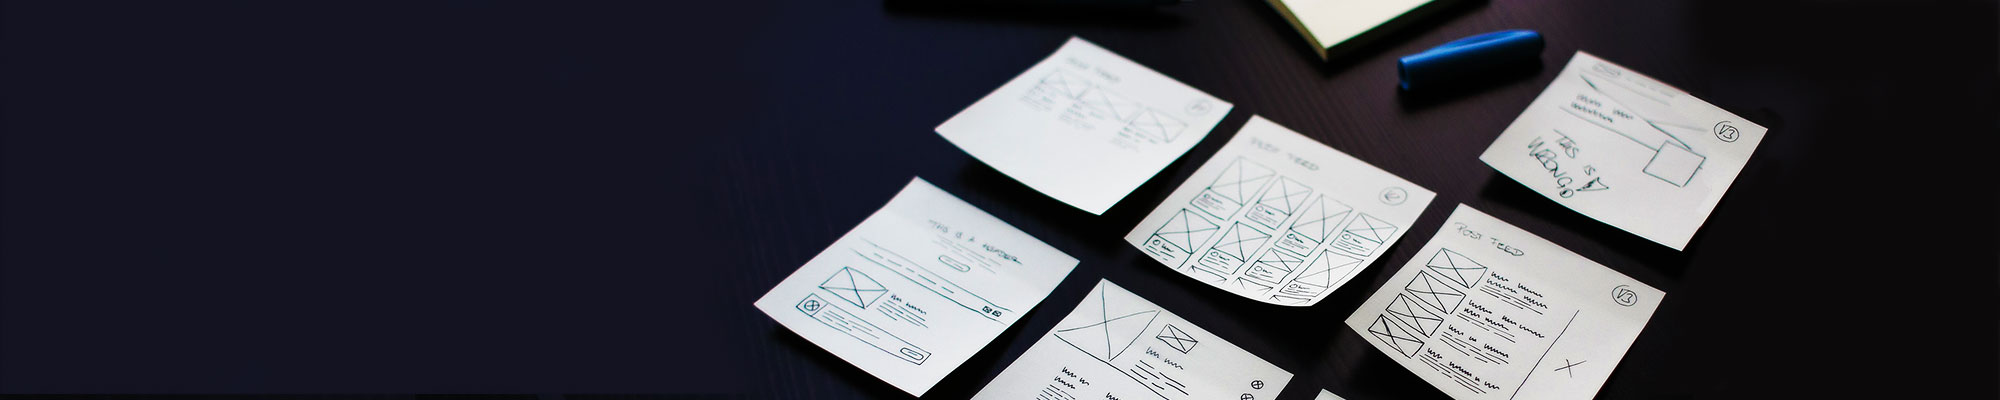 POST FEED
POST FEED
V3
THIS IS
WRONG
THIS IS A HEADER
POST FEED
V3